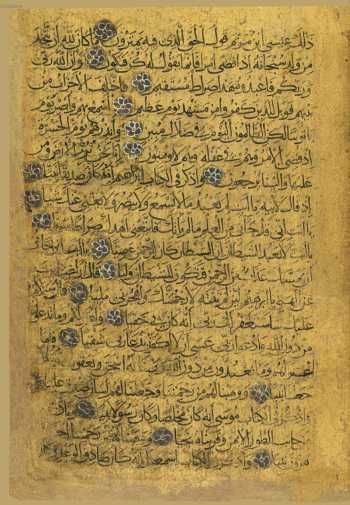 ذلك عيسى ابن مريم قول الحق الذي فيه يمترون ما كان لله ان يتخذ
من ولد سبحانه اذا قضى امرا فانما يقول له كن فيكون وان الله ربي
وربكم فاعبدوه هذا صراط مستقيم فاختلف الاحزاب من
بينهم فويل للذين كفروا من مشهد يوم عظيم اسمع بهم وابصر يوم
ياتوننا لكن الظالمون اليوم في ضلال مبين وانذرهم يوم الحسرة
اذ قضي الامر وهم في غفلة وهم لا يؤمنون انا نحن نرث الارض ومن
عليها والينا يرجعون واذكر في الكتاب ابراهيم انه كان صديقا نبيا
اذ قال لابيه يا ابت لم تعبد ما لا يسمع ولا يبصر ولا يغني عنك شيئا
يا ابت اني قد جاءني من العلم ما لم ياتك فاتبعني اهدك صراطا سويا
يا ابت لا تعبد الشيطان ان الشيطان كان للرحمن عصيا يا ابت اني اخاف
ان يمسك عذاب من الرحمن فتكون للشيطان وليا قال اراغب انت
عن الهتي يا ابرهيم لئن لم تنته لارجمنك واهجرني مليا قال سلام
عليك ساستغفر لك ربي انه كان بي حفيا واعتزلكم وما تدعون
من دون الله وادعو ربي عسى الا اكون بدعاء ربي شقيا فلما
اعتزلهم وما يعبدون من دون الله وهبنا له اسحق ويعقوب
جعلنا نبيا ووهبنا لهم من رحمتنا وجعلنا لهم لسان صدق عليا
واذكر في الكتاب موسى انه كان مخلصا وكان رسولا نبيا
جانب الطور الايمن وقربناه نجيا ووهبنا له من رحمتنا
هرون نبيا واذكر في الكتاب اسمعيل انه كان صادق الوعد وكان